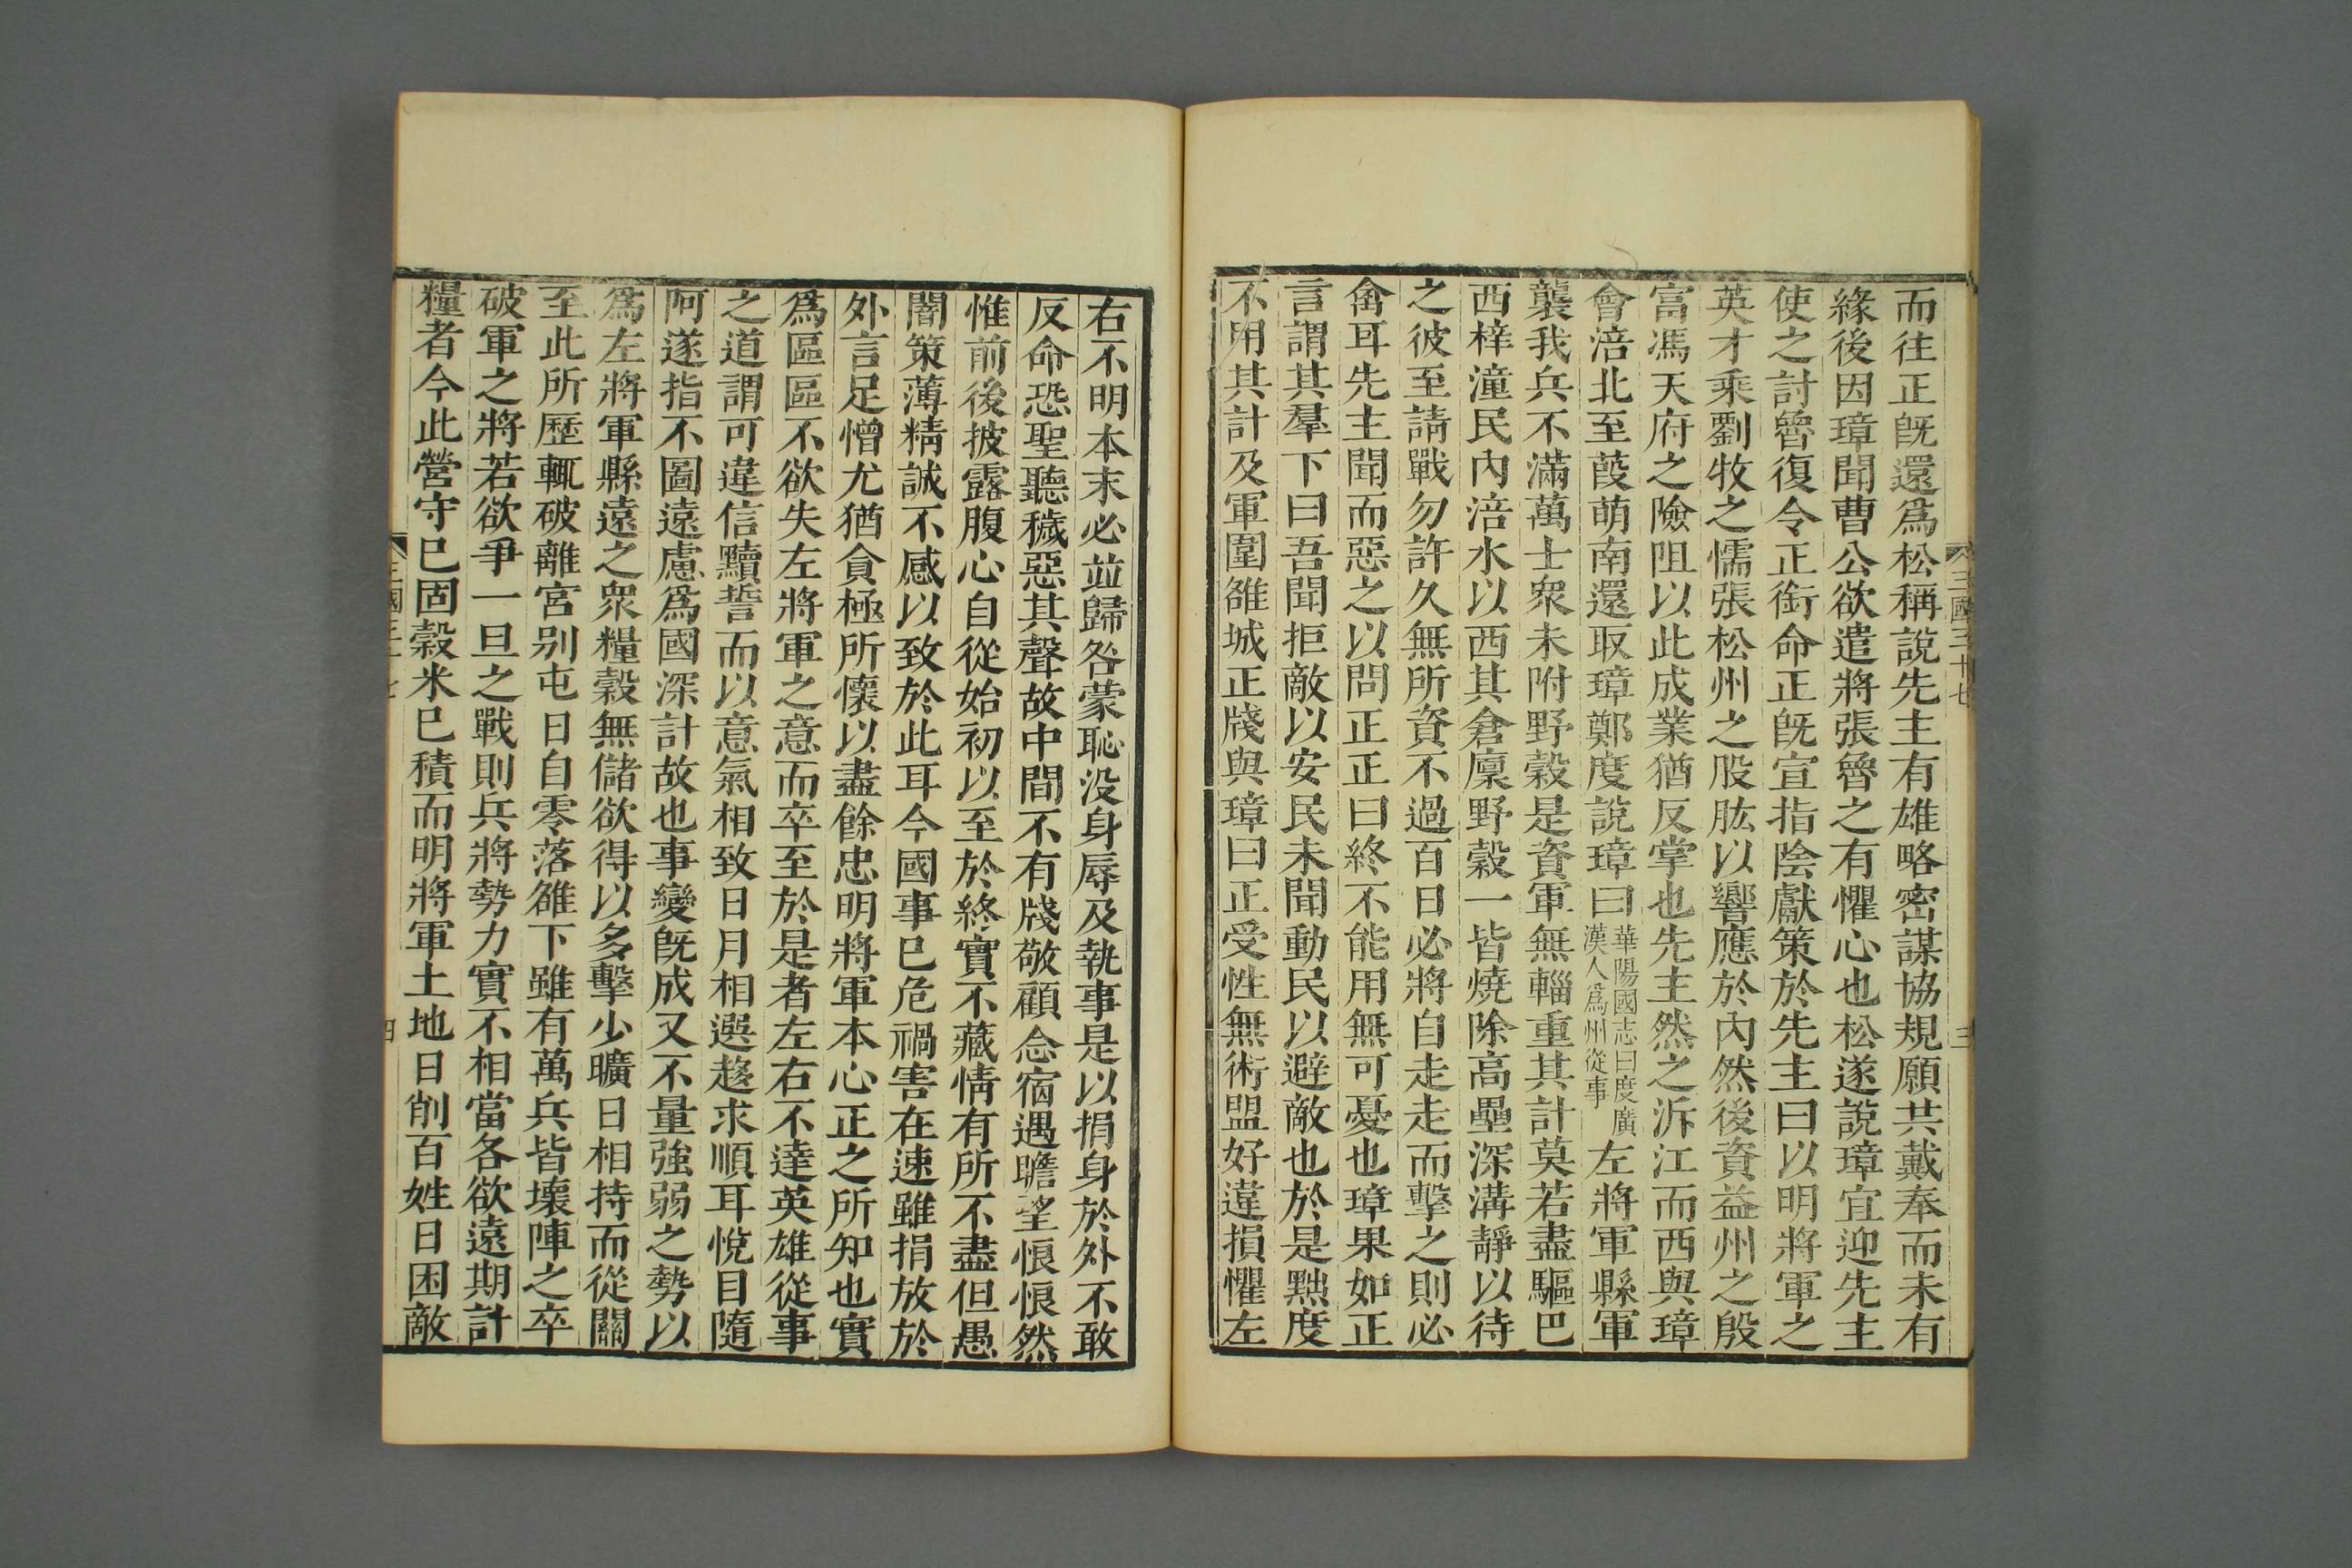 三國三十七
三
而往正旣還爲松稱說先主有雄略密謀協規願共戴奉而未有
緣後因璋聞曹公欲遣將張魯之有懼心也松遂說璋宜迎先主
使之討魯復令正銜命正旣宣指陰獻策於先主曰以明將軍之
英才乘劉牧之懦張松州之股肱以響應於內然後資益州之殷
富馮天府之險阻以此成業猶反掌也先主然之泝江而西與璋
會涪北至葭萌南還取璋鄭度說璋曰華陽國志曰度廣漢人爲州從事左將軍縣軍
襲我兵不滿萬士衆未附野穀是資軍無輜重其計莫若盡驅巴
西梓潼民內涪水以西其倉廩野穀一皆燒除高壘深溝靜以待
之彼至請戰勿許久無所資不過百日必將自走走而擊之則必
禽耳先主聞而惡之以問正正曰終不能用無可憂也璋果如正
言謂其羣下曰吾聞拒敵以安民未聞動民以避敵也於是黜度
不用其計及軍圍雒城正牋與璋曰正受性無術盟好違損懼左
右不明本末必並歸咎蒙恥没身辱及執事是以捐身於外不敢
反命恐聖聽穢惡其聲故中間不有牋敬顧念宿遇瞻望悢悢然
惟前後披露腹心自從始初以至於終實不藏情有所不盡但愚
闇策薄精誠不感以致於此耳今國事已危禍害在速雖捐放於
外言足憎尤猶貪極所懷以盡餘忠明將軍本心正之所知也實
爲區區不欲失左將軍之意而卒至於是者左右不達英雄從事
之道謂可違信黷誓而以意氣相致日月相選趍求順耳悅目隨
阿遂指不圖遠慮爲國深計故也事變旣成又不量強弱之勢以
爲左將軍縣遠之衆糧穀無儲欲得以多擊少曠日相持而從關
至此所歷輒破離宮別屯日自零落雒下雖有萬兵皆壞陣之卒
破軍之將若欲爭一旦之戰則兵將勢力實不相當各欲遠期計
糧者今此營守已固穀米已積而明將軍土地日削百姓日困敵
三國三十七
四